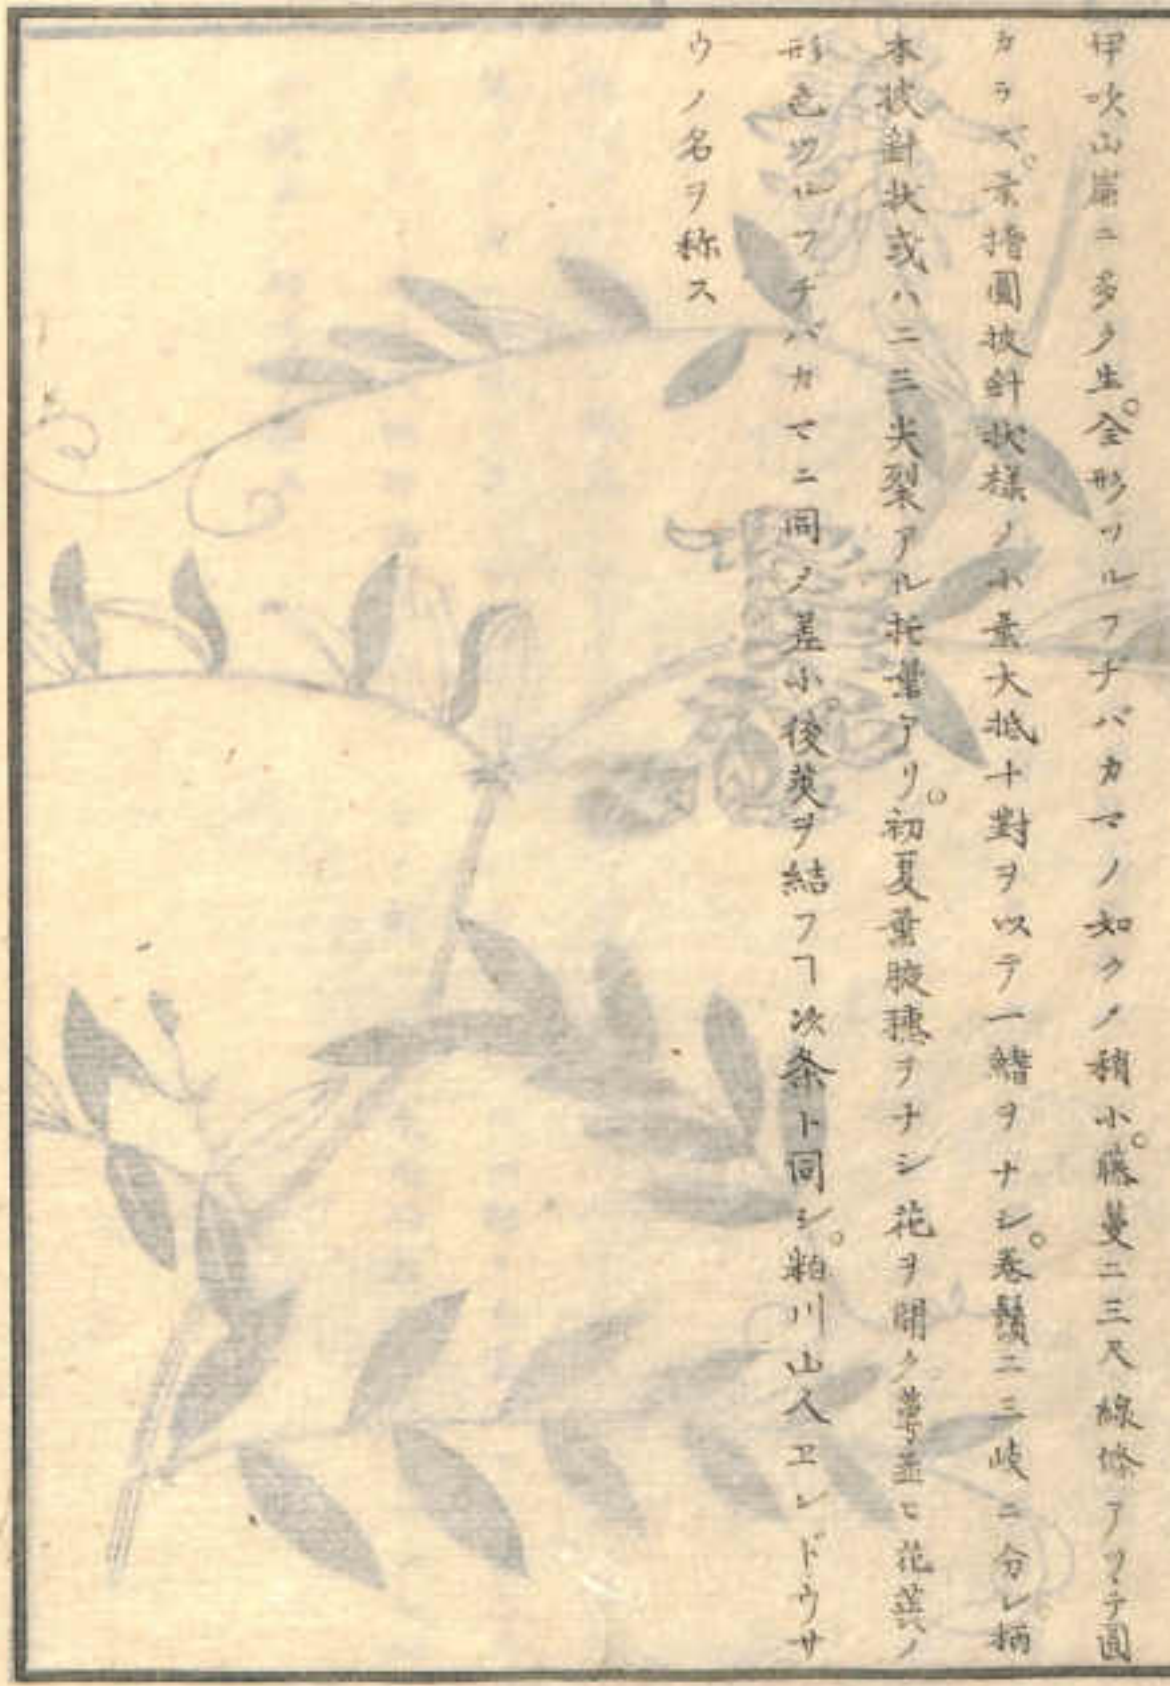 伊吹山嶺ニ多ク生。全形ツルフヂバカマノ如クノ稍小。藤蔓二三尺線條アツテ圓
カラズ。葉橢圓披針状様ノ小葉大抵十對ヲ以テ一鰭ヲナシ。巻鬚二三岐ニ分レ柄
本披針状或ハ二三尖裂アル托葉アリ。初夏葉腋穂ヲナシ花ヲ開ク萼並ヒ花英ノ
形色ツルフヂバカマニ同ノ差小後莢ヲ結フヿ次条ト同シ。粕川山人エンドウサ
ウノ名ヲ称ス